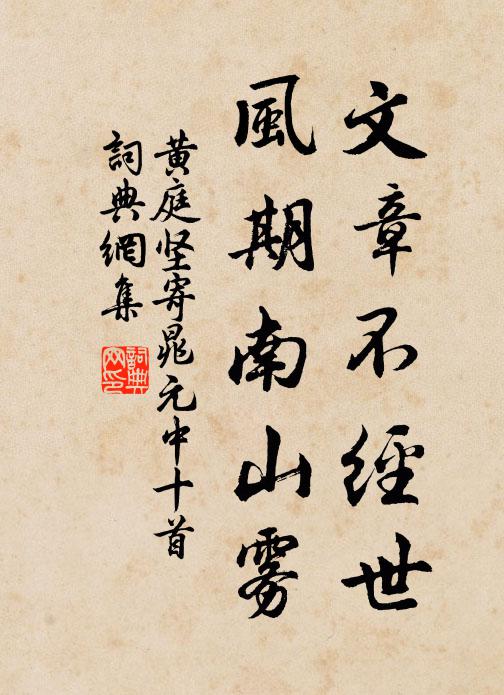 文章不經世
風期南山雾
黄庭坚寄晁元中十首
詞典網集
詞典网印